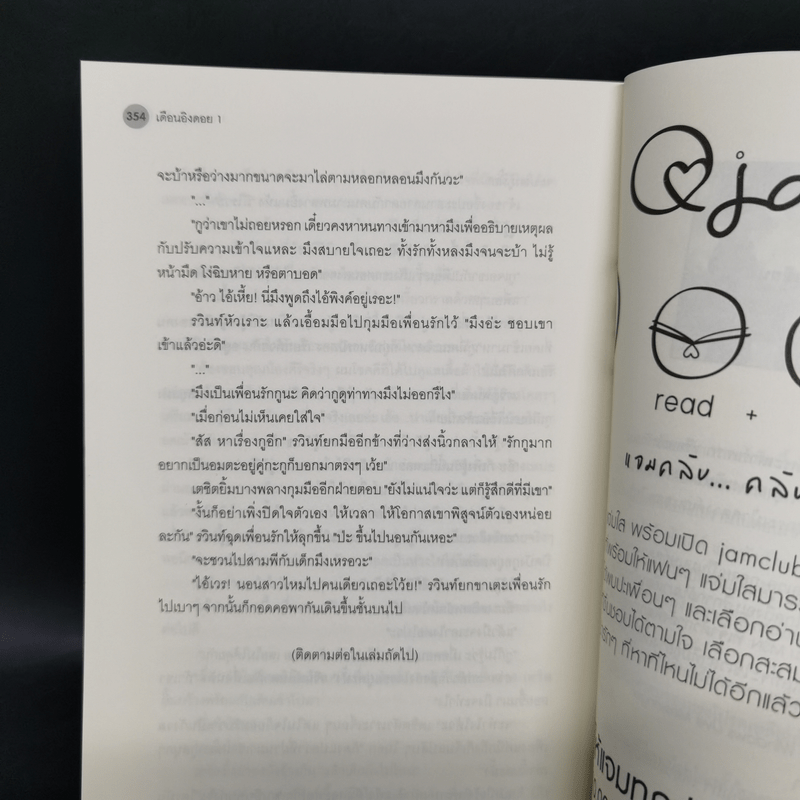 354 เดือนอิงดอย 1
จะบ้าหรือว่างมากขนาดจะมาไล่ตามหลอกหลอนมึงกันวะ"
"..."
"กูว่าเขาไม่ถอยหรอก เดี๋ยวคงหาหนทางเข้ามาหามึงเพื่ออธิบายเหตุผล
กับปรับความเข้าใจแหละ มึงสบายใจเถอะ ทั้งรักทั้งหลงมึงจนจะบ้า ไม่รู้
หน้ามืด โง่ฉิบหาย หรือตาบอด"
"อ้าว ไอ้เหี้ย! นี่มึงพูดถึงไอ้พิงค์อยู่เรอะ!"
รวินท์หัวเราะ แล้วเอื้อมมือไปกุมมือเพื่อนรักไว้ "มึงอ่ะ ชอบเขา
เข้าแล้วอ่ะดิ"
"..."
"มึงเป็นเพื่อนรักกูนะ คิดว่ากูดูท่าทางมึงไม่ออกรึไง"
"เมื่อก่อนไม่เห็นเคยใส่ใจ"
"สัส หาเรื่องกูอีก" รวินท์ยกมืออีกข้างที่ว่างส่งนิ้วกลางให้ "รักกูมาก
อยากเป็นอมตะอยู่คู่กะกูก็บอกมาตรงๆ เว้ย"
เตชิตยิ้มบางพลางกุมมืออีกฝ่ายตอบ "ยังไม่แน่ใจว่ะ แต่ก็รู้สึกดีที่มีเขา"
"งั้นก็อย่าเพิ่งปิดใจตัวเอง ให้เวลา ให้โอกาสเขาพิสูจน์ตัวเองหน่อย
ละกัน" รวินท์ฉุดเพื่อนรักให้ลุกขึ้น "ปะ ขึ้นไปนอนกันเหอะ"
"จะชวนไปสามพีกับเด็กมึงเหรอวะ"
"ไอ้เวร! นอนสาวไหมไปคนเดียวเถอะโว้ย!" รวินท์ยกขาเตะเพื่อนรัก
ไปเบาๆ จากนั้นก็กอดคอพากันเดินขึ้นชั้นบนไป
(ติดตามต่อในเล่มถัดไป)
read +
แจมคลับ...
พร้อมเปิด jamclub
พร้อมให้แฟนๆ แจ่มใสมาร
เพื่อนๆ และเลือกอ่าน
ชอบได้ตามใจ เลือกสะสม
ที่หาที่ไหนไม่ได้อีกแล้ว